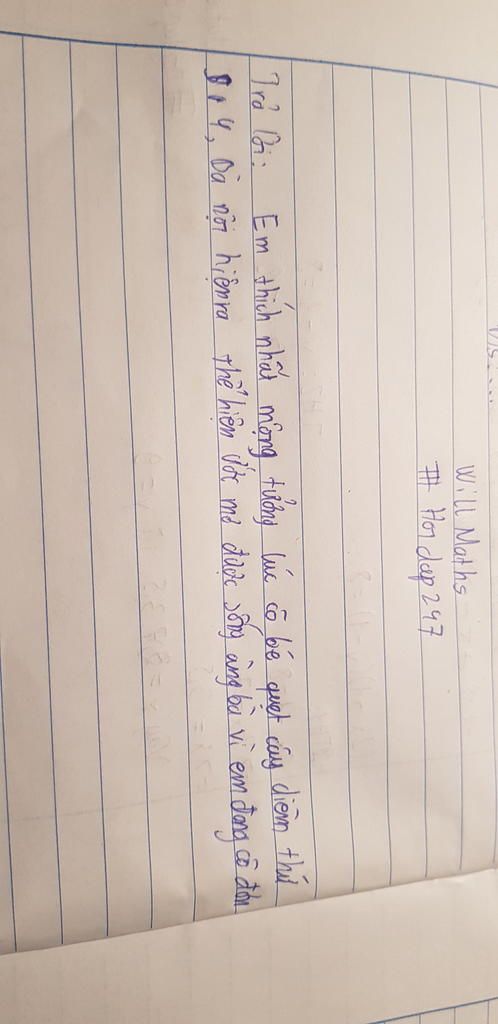 Will Maths
# Hoidap247
Trả lời: Em thích nhất mộng tưởng lúc cô bé quẹt cây diêm thứ
4, bà nội hiện ra thể hiện ước mơ được sống cùng bà vì em đang cô đơn